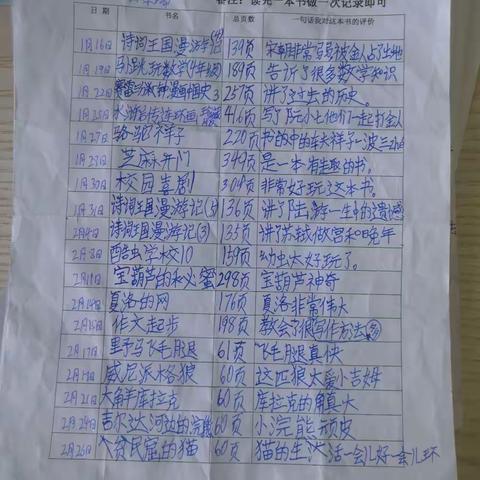 备注：读完一本书做一次记录即可
日期 书名 一句话我对这本书的评价
1月16日 诗词王国漫游记 139页 宋朝非常弱被金人占了土地
1月19日 马小跳玩数学(4年级) 189页 告诉了很多数学知识
1月22日 赛雷 漫画中国史3 257页 讲了过去的历史。
1月25日 水浒传连环画 416页 写了阮小七他们一起打金人
1月27日 骆驼祥子 220页 书的中的车夫祥子一波三
1月29日 芝麻开门 349页 是一本有生趣的书。
1月30日 校园喜剧 304页 非常好玩这本书。
1月31日 诗词王国漫游记(3) 136页 讲了陆游一生的遗憾
2月4日 诗词王国漫游记(3) 135页 讲了苏轼做官和晚年
2月8日 酷虫学校10 159页 幼虫太好玩了。
2月11日 宝葫芦的秘密 298页 宝葫芦神奇
2月14日 夏洛的网 176页 夏洛非常伟大
2月15日 作文起步 198页 教会了很写作方法多
2月17日 野马飞毛腿 61页 飞毛腿真快
2月19日 威尼派克狼 60页 这匹狼太爱小吉姆
2月21日 大角羊库拉克 60页 库拉克的角真大
2月24日 吉尔达河边的浣熊 60页 小浣熊顽皮
2月26日 贫民窟的猫 60页 猫的生活一会儿好一会儿坏